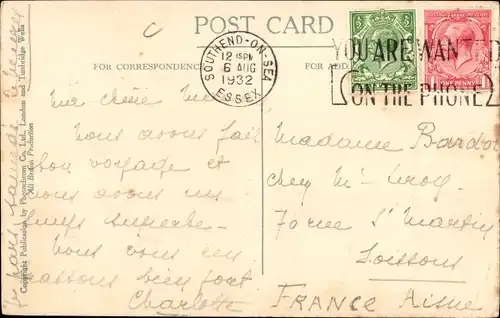 C
POST CARD
FOR CORRESPONDENCE
FOR ADD
SOUTHEND-ON-SEA
12 15 PM
6 AUG
1932
ESSEX
YOU ARE WANTED
ON THE PHONE
½ ½
ONE PENNY
ma chère
Nous avons fait
bon voyage et
nous avons un
temps superbe.
Nous vous
bien fort
Charlotte
Madame Bardot
chez Mr Leroy
7 rue St Martin
Soissons
FRANCE Aisne
Copyright Publication by Photochrom Co. Ltd., London and Tunbridge Wells
All British Production
samedi